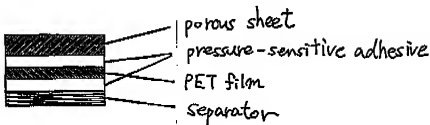 porous sheet
pressure-sensitive adhesive
PET film
separator